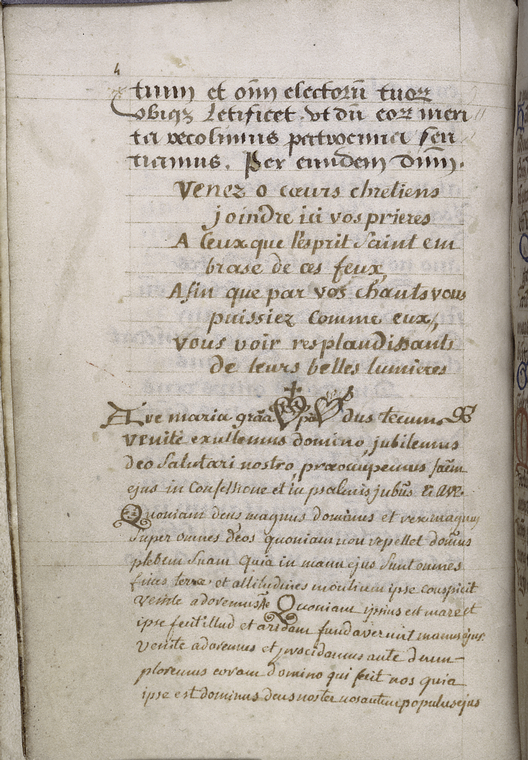 4
tuum et om̄ electorū tuor̄
obiqz letificet. vt dū eor̄ meri
ta recolimus patrocinia sen
tiamus. Per eundem dnm̄.
Venez o cœurs chretiens
joindre ici vos prieres
A Ceux que l'esprit Saint em
brase de ces feux
Afin que par vos chants vous
puissiez Comme eux,
vous voir resplandissants
de leurs belles lumieres
Ave maria grãa dus tecum
venite exultemus domino, jubilemus
deo Salutari nostro, præoccupemus faēm
ejus in Confessione et in psalmis jubūs
Quoniam deus magnus dominus et rex magnus
Super omnes deos quoniam non repellet domūs
plebem Suam Quia in manu ejus Sunt omnes
fines terræ et altitudines montium ipse conspicit
venite adoremus Quoniam ipsius est mare et
ipse fecit illud et aridam fundaverunt manus ejus
venite adoremus et procidamus ante deum
ploremus coram domino qui fecit nos quia
ipse est dominus deus noster nos autem populus ejus